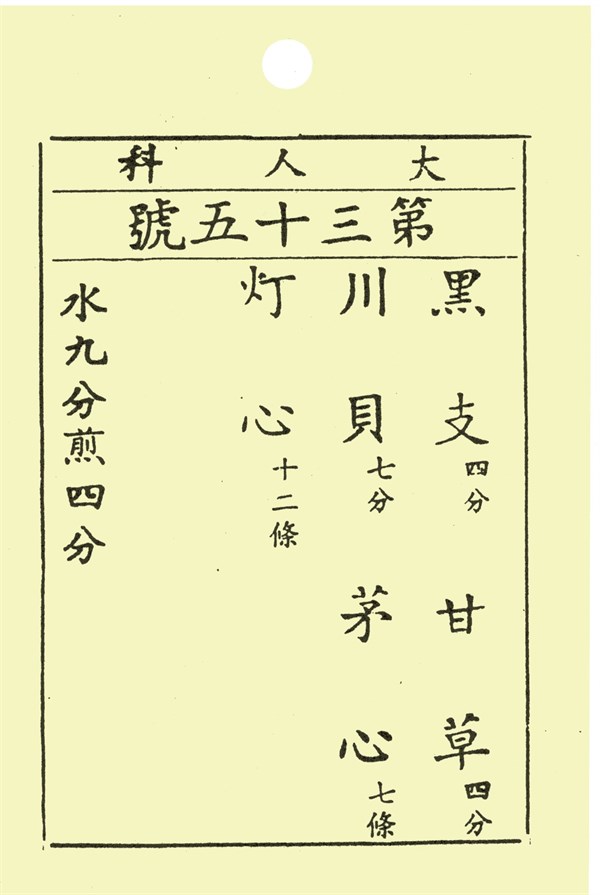 大人科
第三十五號
黑支四分 甘草四分
川貝七分 茅心七條
灯心十二條
水九分煎四分